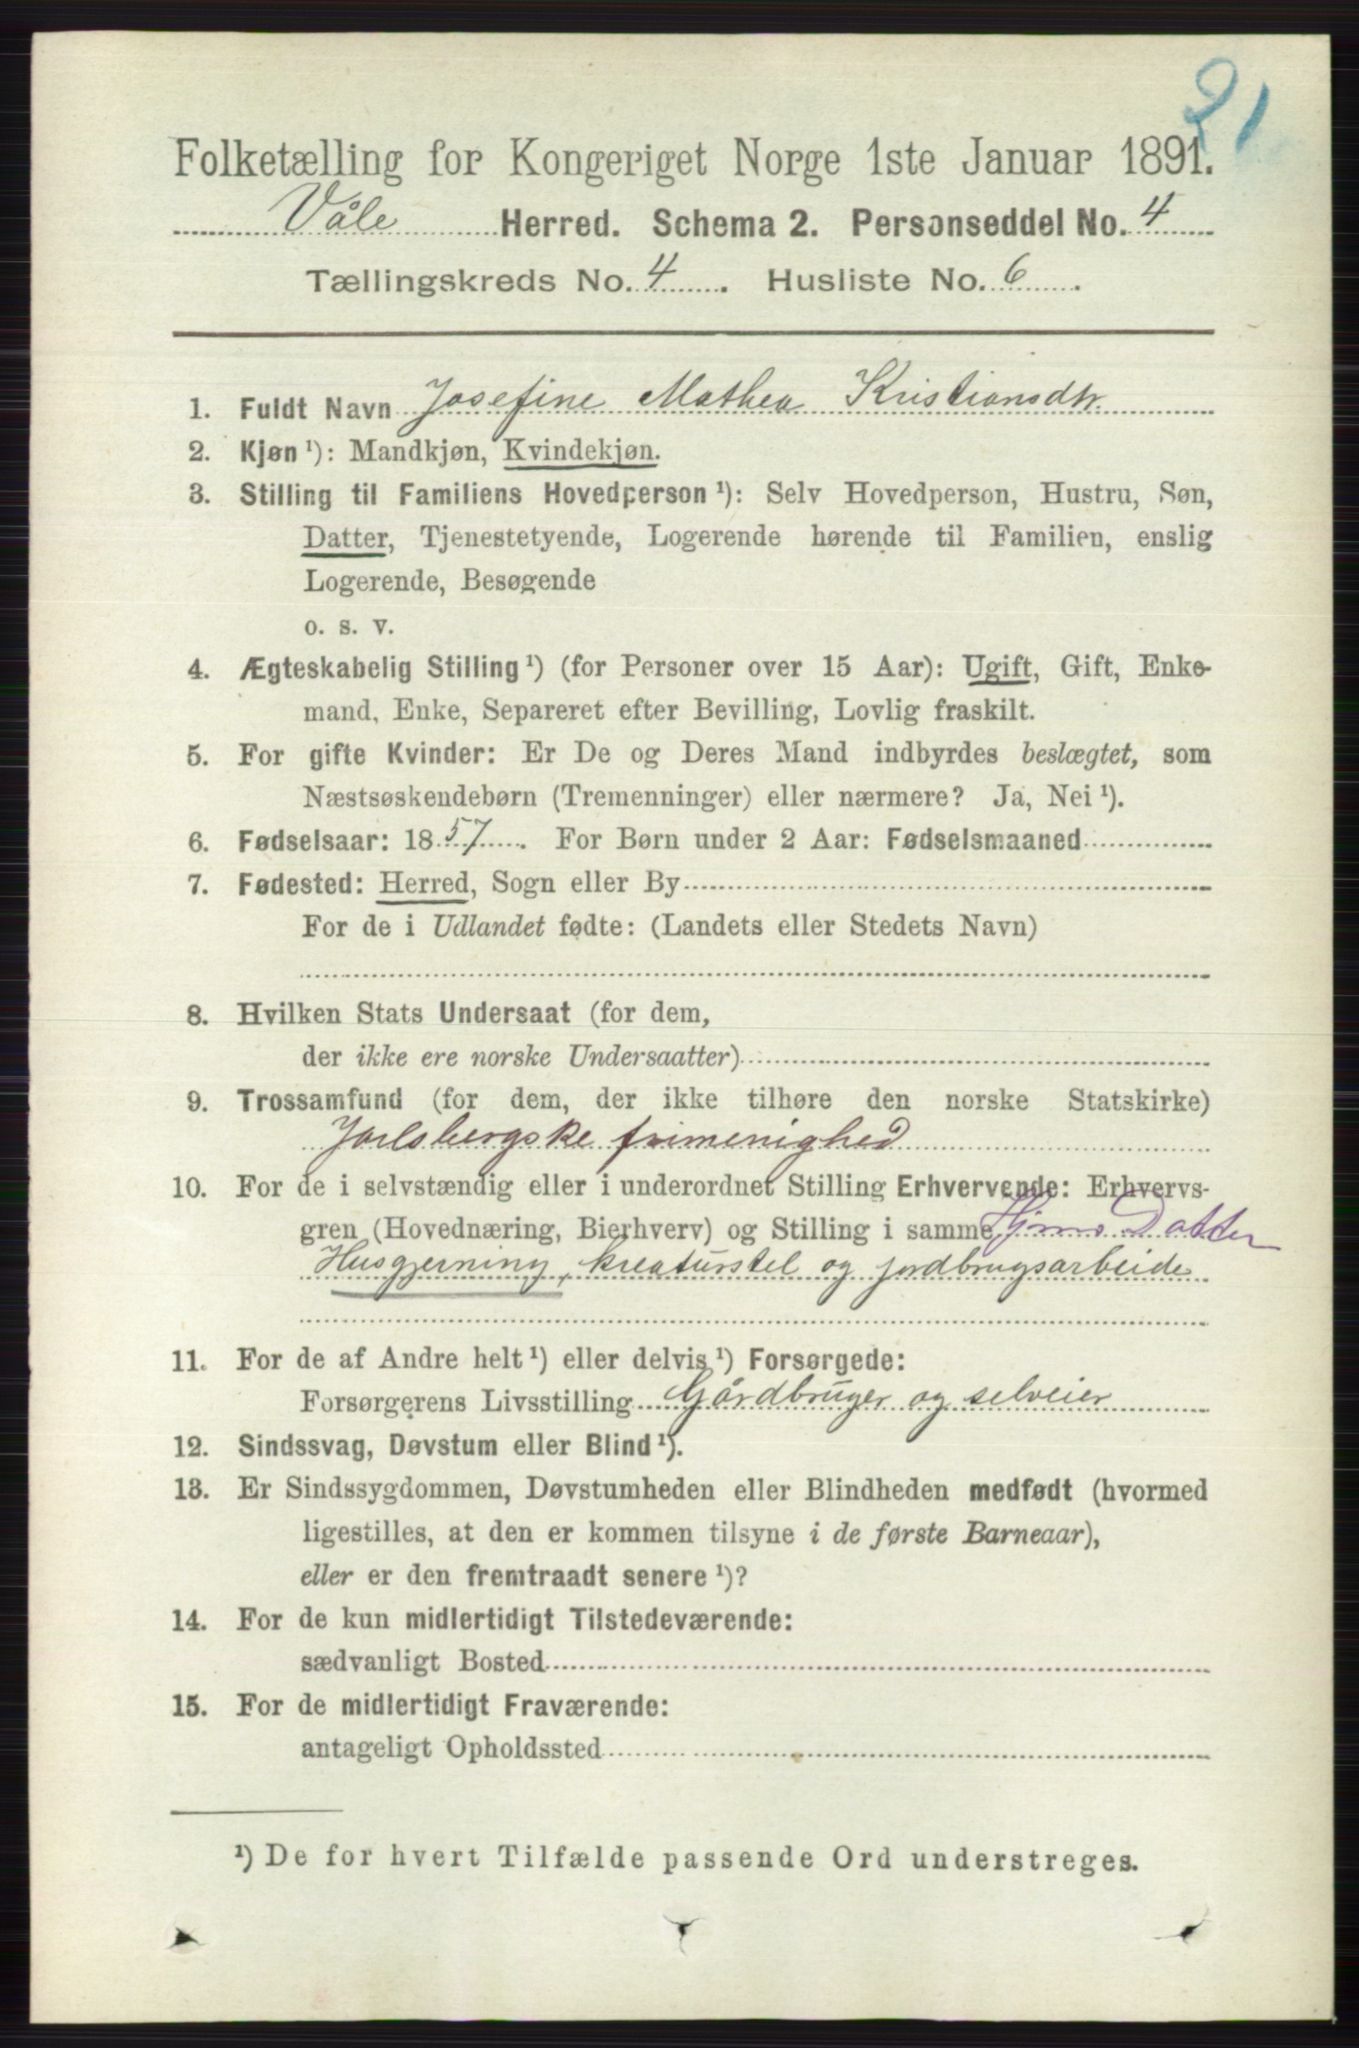 21
Folketælling for Kongeriget Norge 1ste Januar 1891.
Våle Herred. Schema 2. Personseddel No. 4
Tællingskreds No. 4. Husliste No. 6.
1. Fuldt Navn Josefine Mathea Kristiansdtr.
2. Kjøn ¹): Mandkjøn, Kvindekjøn.
3. Stilling til Familiens Hovedperson ¹): Selv Hovedperson, Hustru, Søn,
Datter, Tjenestetyende, Logerende hørende til Familien, enslig
Logerende, Besøgende
o. s. v.
4. Ægteskabelig Stilling ¹) (for Personer over 15 Aar): Ugift, Gift, Enke-
mand, Enke, Separeret efter Bevilling, Lovlig fraskilt.
5. For gifte Kvinder: Er De og Deres Mand indbyrdes beslægtet, som
Næstsøskendebørn (Tremenninger) eller nærmere? Ja, Nei ¹).
6. Fødselsaar: 1857. For Børn under 2 Aar: Fødselsmaaned
7. Fødested: Herred, Sogn eller By
For de i Udlandet fødte: (Landets eller Stedets Navn)
8. Hvilken Stats Undersaat (for dem,
der ikke ere norske Undersaatter)
9. Trossamfund (for dem, der ikke tilhøre den norske Statskirke)
Jarlsbergske frimenighed
10. For de i selvstændig eller i underordnet Stilling Erhvervende: Erhvervs-
gren (Hovednæring, Bierhverv) og Stilling i samme Hjms Datter
Husgjerning, kreaturstel og jordbrugsarbeide
11. For de af Andre helt ¹) eller delvis ¹) Forsørgede:
Forsørgerens Livsstilling Gårdbruger og selveier
12. Sindssvag, Døvstum eller Blind ¹).
13. Er Sindssygdommen, Døvstumheden eller Blindheden medfødt (hvormed
ligestilles, at den er kommen tilsyne i de første Barneaar),
eller er den fremtraadt senere ¹)?
14. For de kun midlertidigt Tilstedeværende:
sædvanligt Bosted
15. For de midlertidigt Fraværende:
antageligt Opholdssted
¹) De for hvert Tilfælde passende Ord understreges.